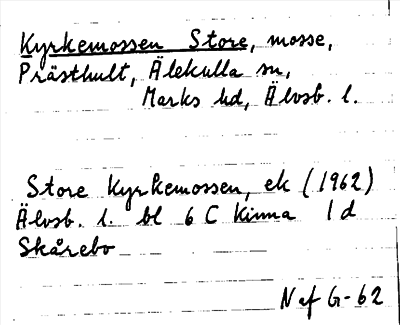 Kyrkemossen Store, mosse,
Prästhult, Älekulla sn,
Marks hd, Älvsb. l.
Store Kyrkemossen, ek (1962)
Älvsb. l. bl 6 C Kinna 1 d
Skårebo
N af G-62